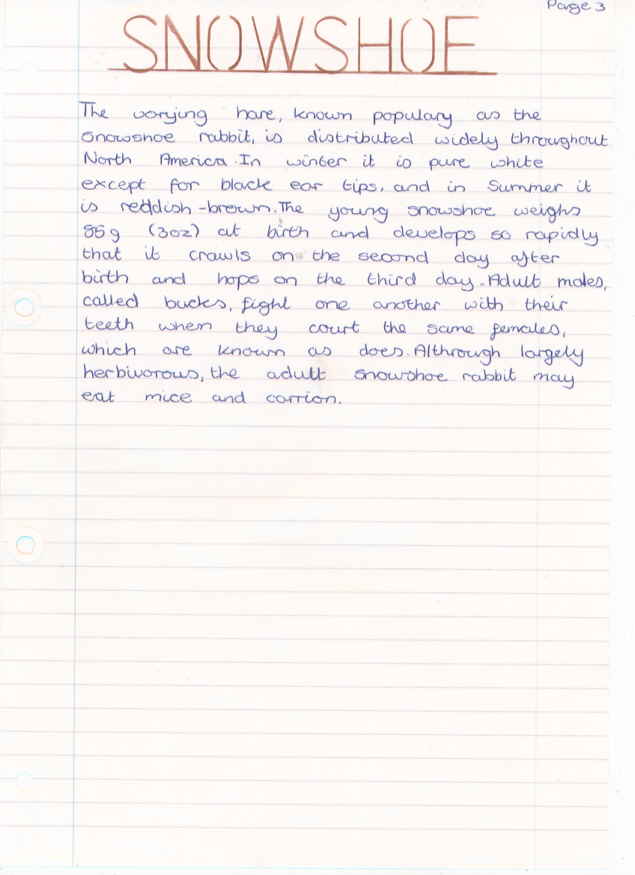 Page 3
SNOWSHOE
The varying hare, known populary as the
Snowshoe rabbit, is distributed widely throughout
North America. In winter it is pure white
except for black ear tips, and in Summer it
is reddish-brown. The young snowshoe weighs
85g (3oz) at birth and develops so rapidly
that it crawls on the second day after
birth and hops on the third day. Adult males,
called bucks, fight one another with their
teeth when they court the same females,
which are known as does. Althrough largely
herbivorous, the adult snowshoe rabbit may
eat mice and carrion.